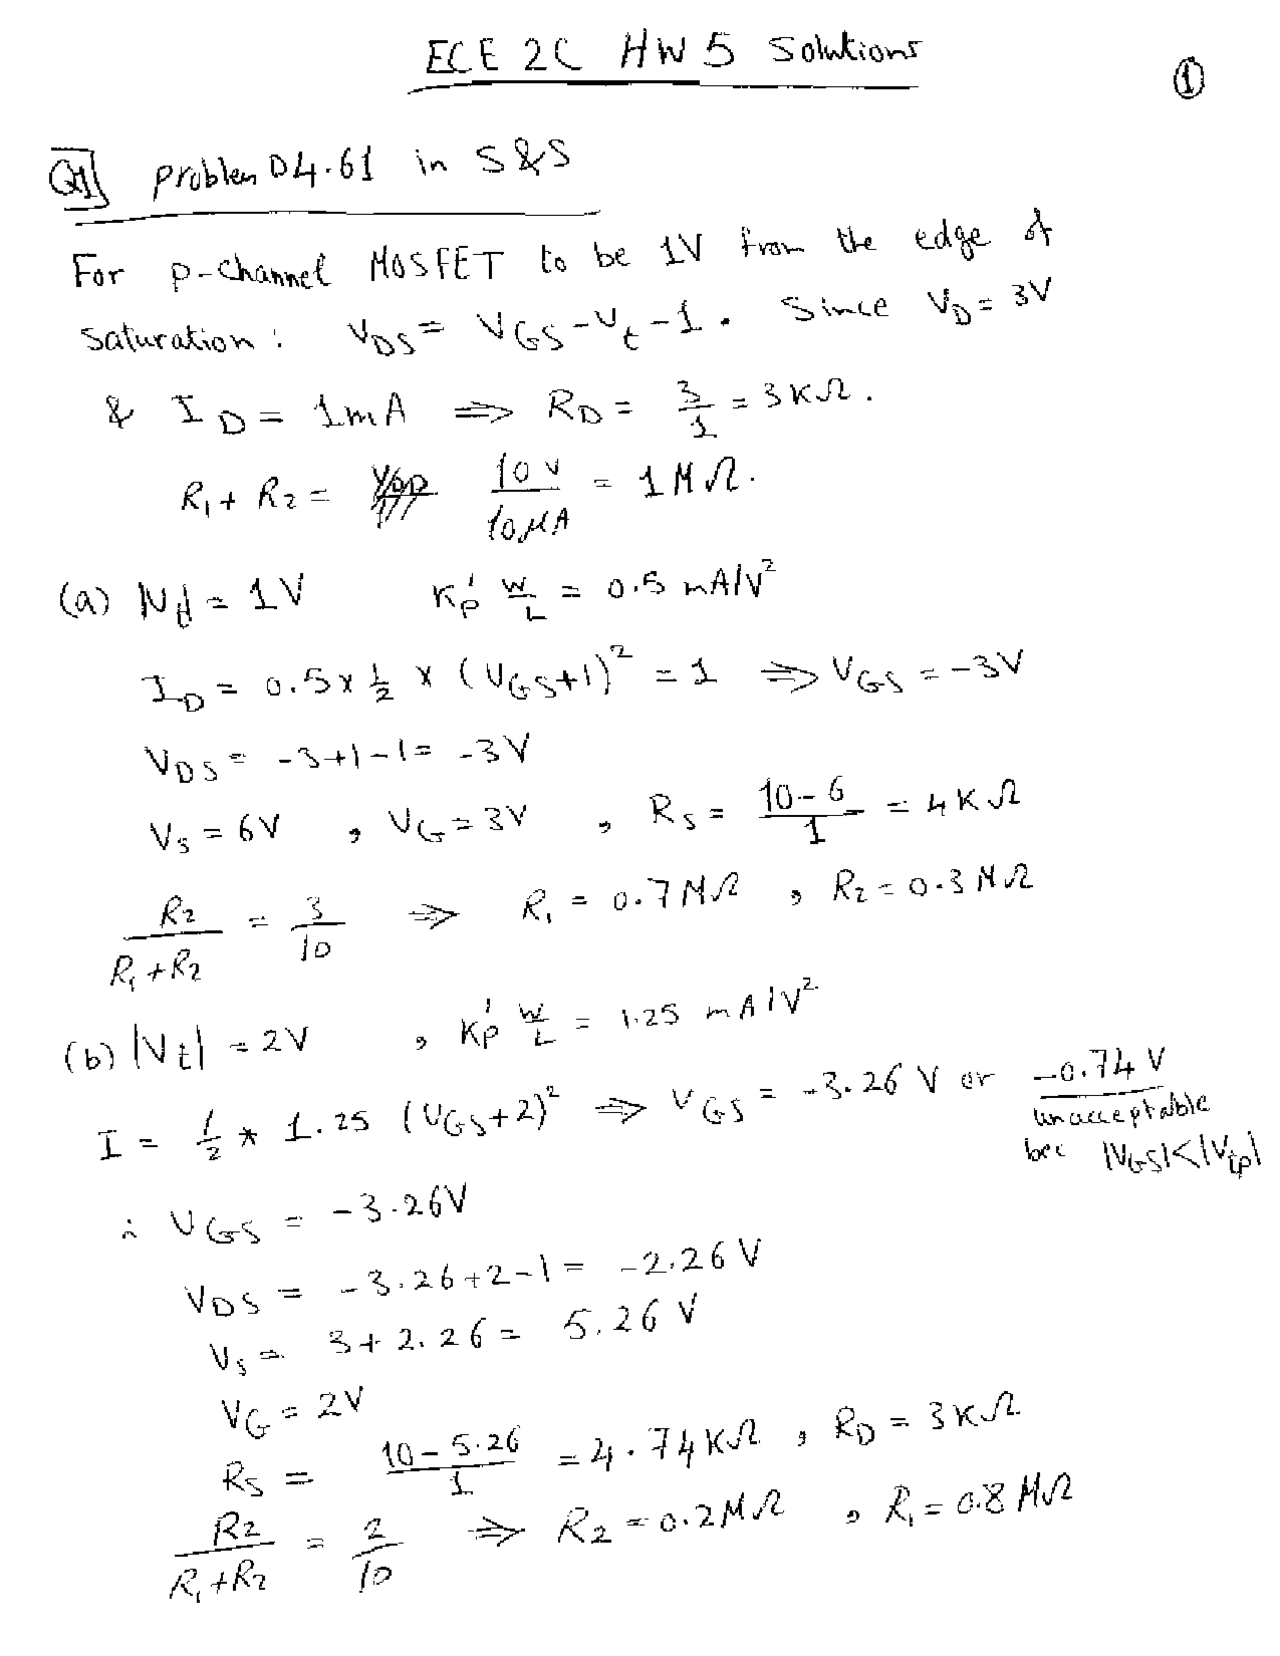 ECE 2C HW 5 Solutions
①
Q1] problem D4.61 in S&S
For p-channel MOSFET to be 1V from the edge of
saturation: V_DS = V_GS - V_t - 1. Since V_D = 3V
& I_D = 1mA ⇒ R_D = 3/1 = 3KΩ.
R_1 + R_2 = 10V/10μA = 1MΩ.
(a) |V_t| = 1V K_p' W/L = 0.5 mA/V²
I_D = 0.5 x 1/2 x (V_GS+1)² = 1 ⇒ V_GS = -3V
V_DS = -3+1-1 = -3V
V_S = 6V , V_G = 3V , R_S = (10-6)/1 = 4KΩ
R_2/(R_1+R_2) = 3/10 ⇒ R_1 = 0.7MΩ , R_2 = 0.3MΩ
(b) |V_t| = 2V , K_p' W/L = 1.25 mA/V²
I = 1/2 * 1.25 (V_GS+2)² ⇒ V_GS = -3.26 V or -0.74 V
unacceptable
bec |V_GS|<|V_tp|
∴ V_GS = -3.26V
V_DS = -3.26+2-1 = -2.26 V
V_S = 3+2.26 = 5.26 V
V_G = 2V
R_S = (10-5.26)/1 = 4.74KΩ , R_D = 3KΩ
R_2/(R_1+R_2) = 2/10 ⇒ R_2 = 0.2MΩ , R_1 = 0.8MΩ